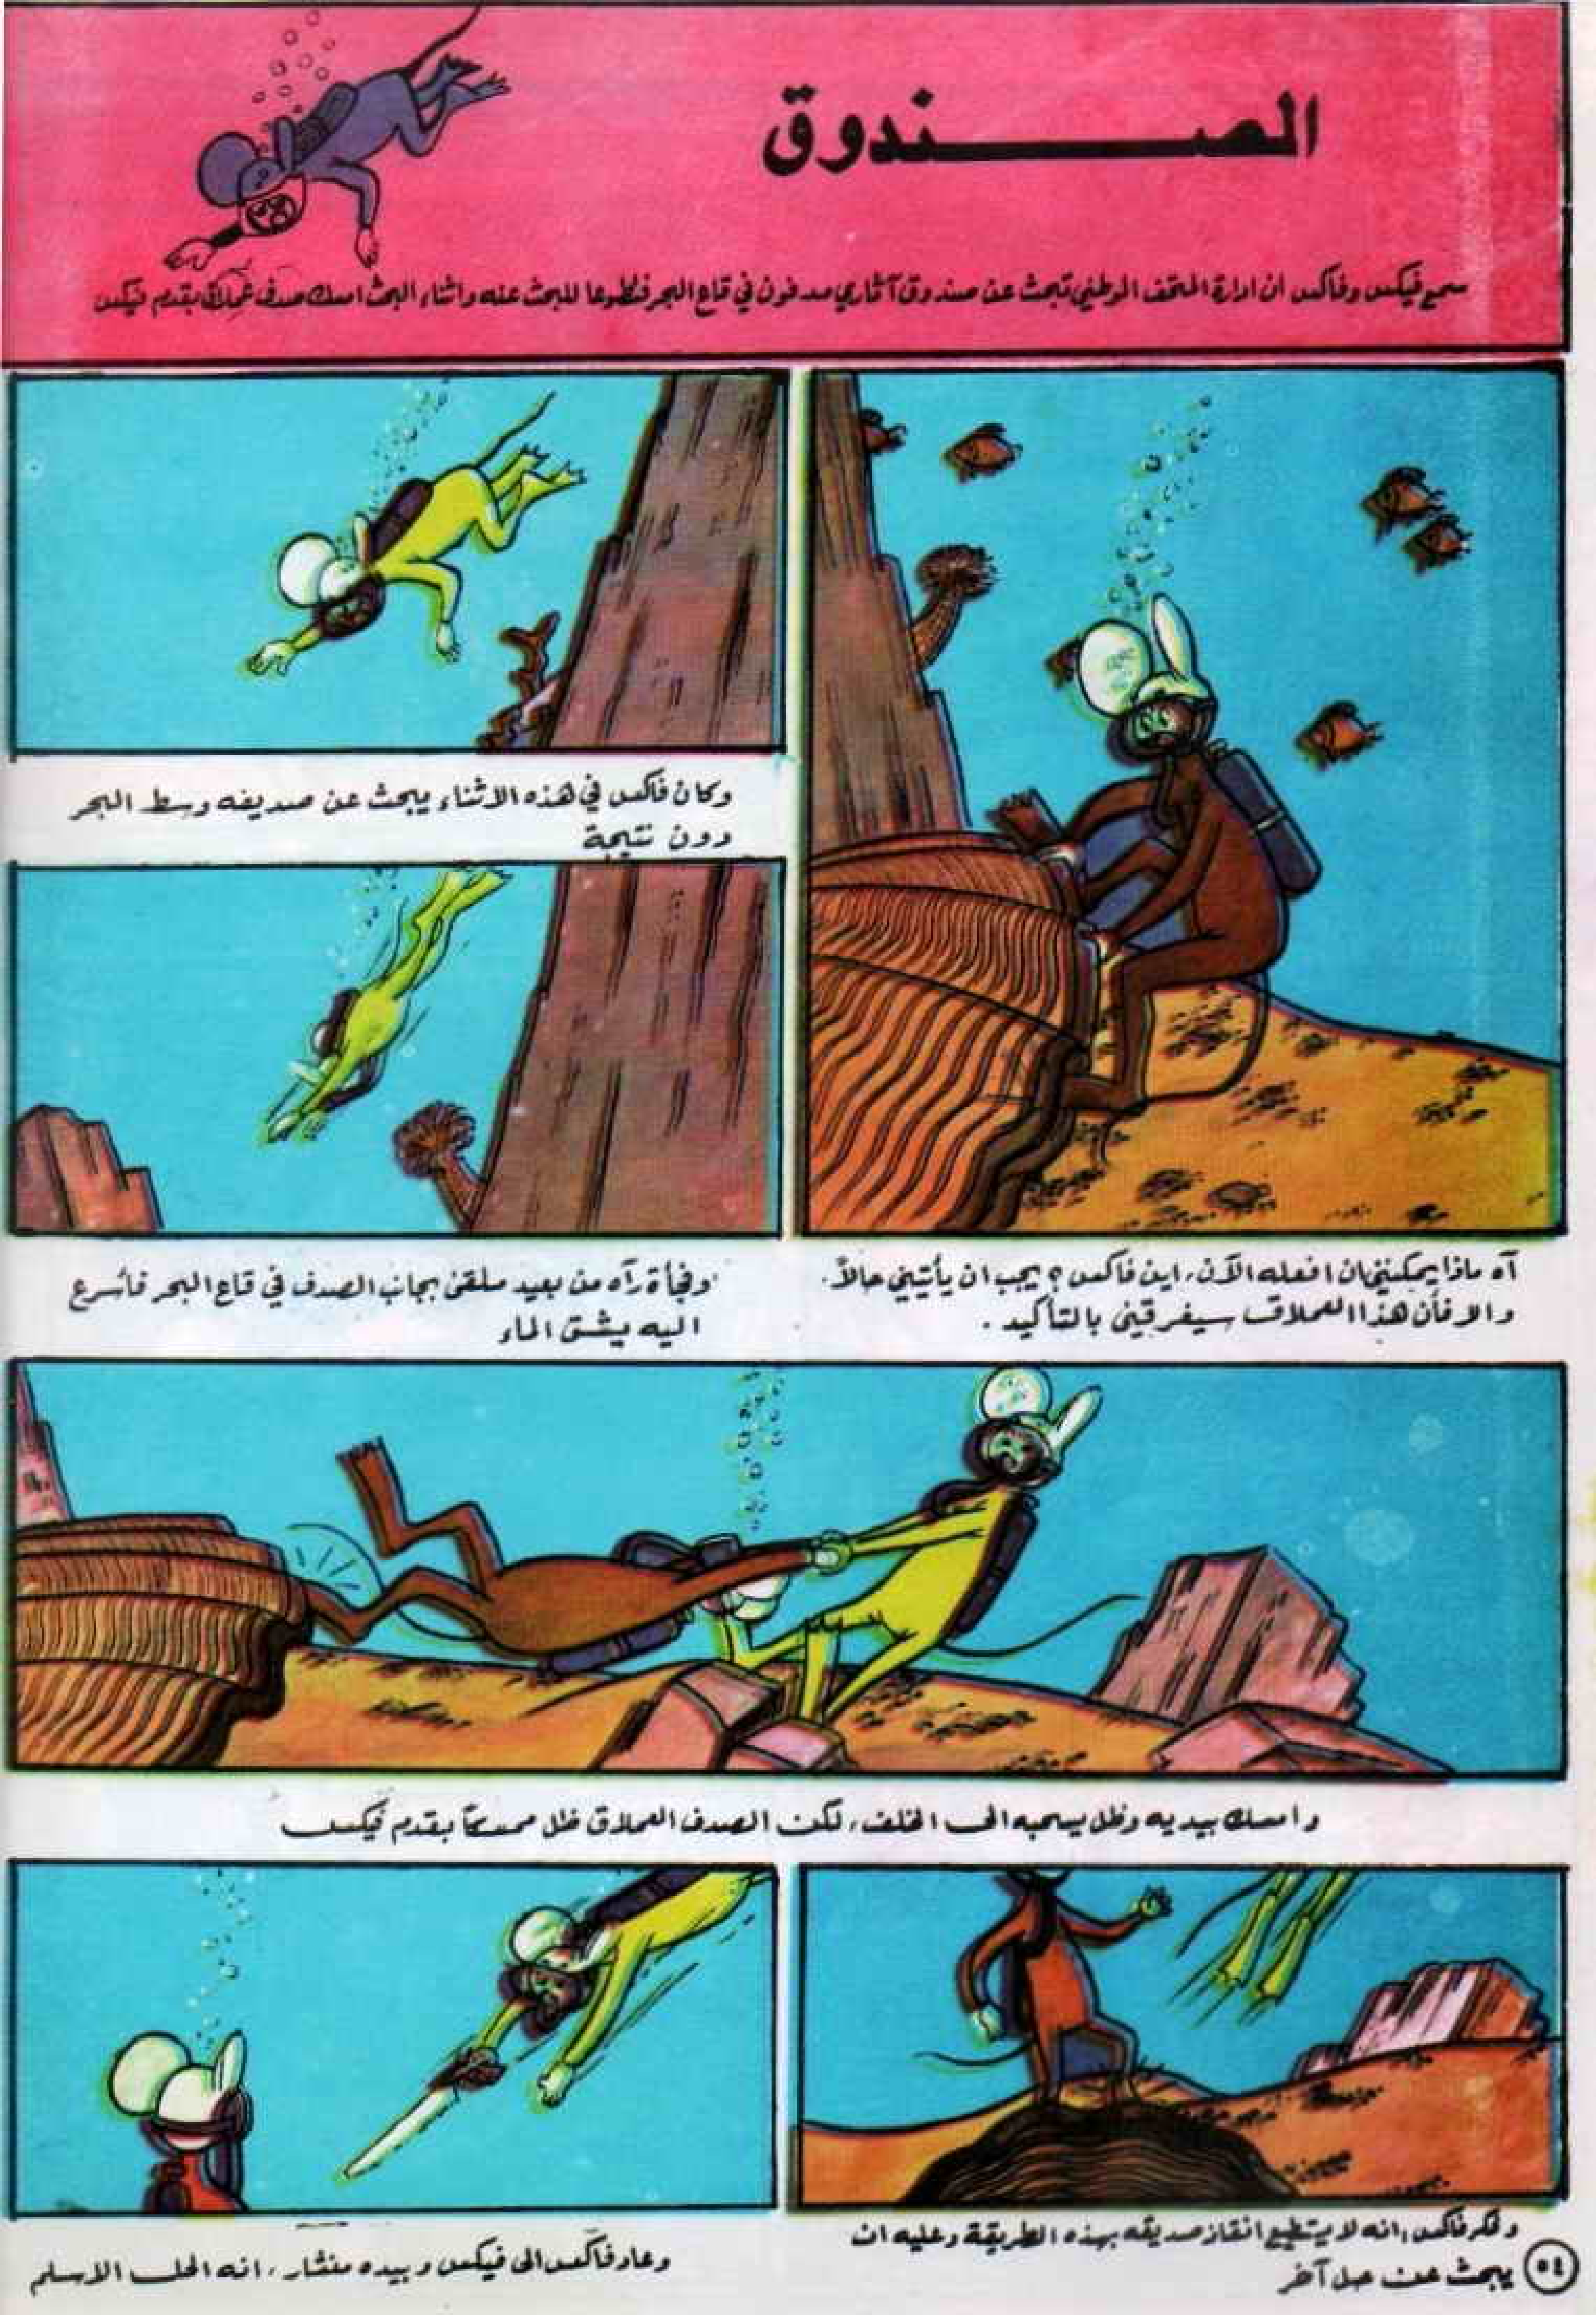 الصندوق
سمع فيكس وفاكس ان ادارة المتحف الوطني تبحث عن صندوق آثاري مدفون في قاع البحر فتطوعا للبحث عنه واثناء البحث امسك صدف عملاق بقدم فيكس
آه ماذا يمكنني ان افعله الآن، اين فاكس؟ يجب ان يأتيني حالاً.
والا فأن هذا العملاق سيغرقني بالتأكيد.
وكان فاكس في هذه الاثناء يبحث عن صديقه وسط البحر
دون نتيجة
وفجأة رآه من بعيد ملقى بجانب الصدف في قاع البحر فأسرع
اليه يشق الماء
وامسك بيديه وظل يسحبه الى الخلف، لكن الصدف العملاق ظل ممسكاً بقدم فيكس
وفكر فاكس، انه لا يستطيع انقاذ صديقه بهذه الطريقة وعليه ان
يبحث عن حل آخر
وعاد فاكس الى فيكس وبيده منشار، انه الحل الاسلم
٥٤